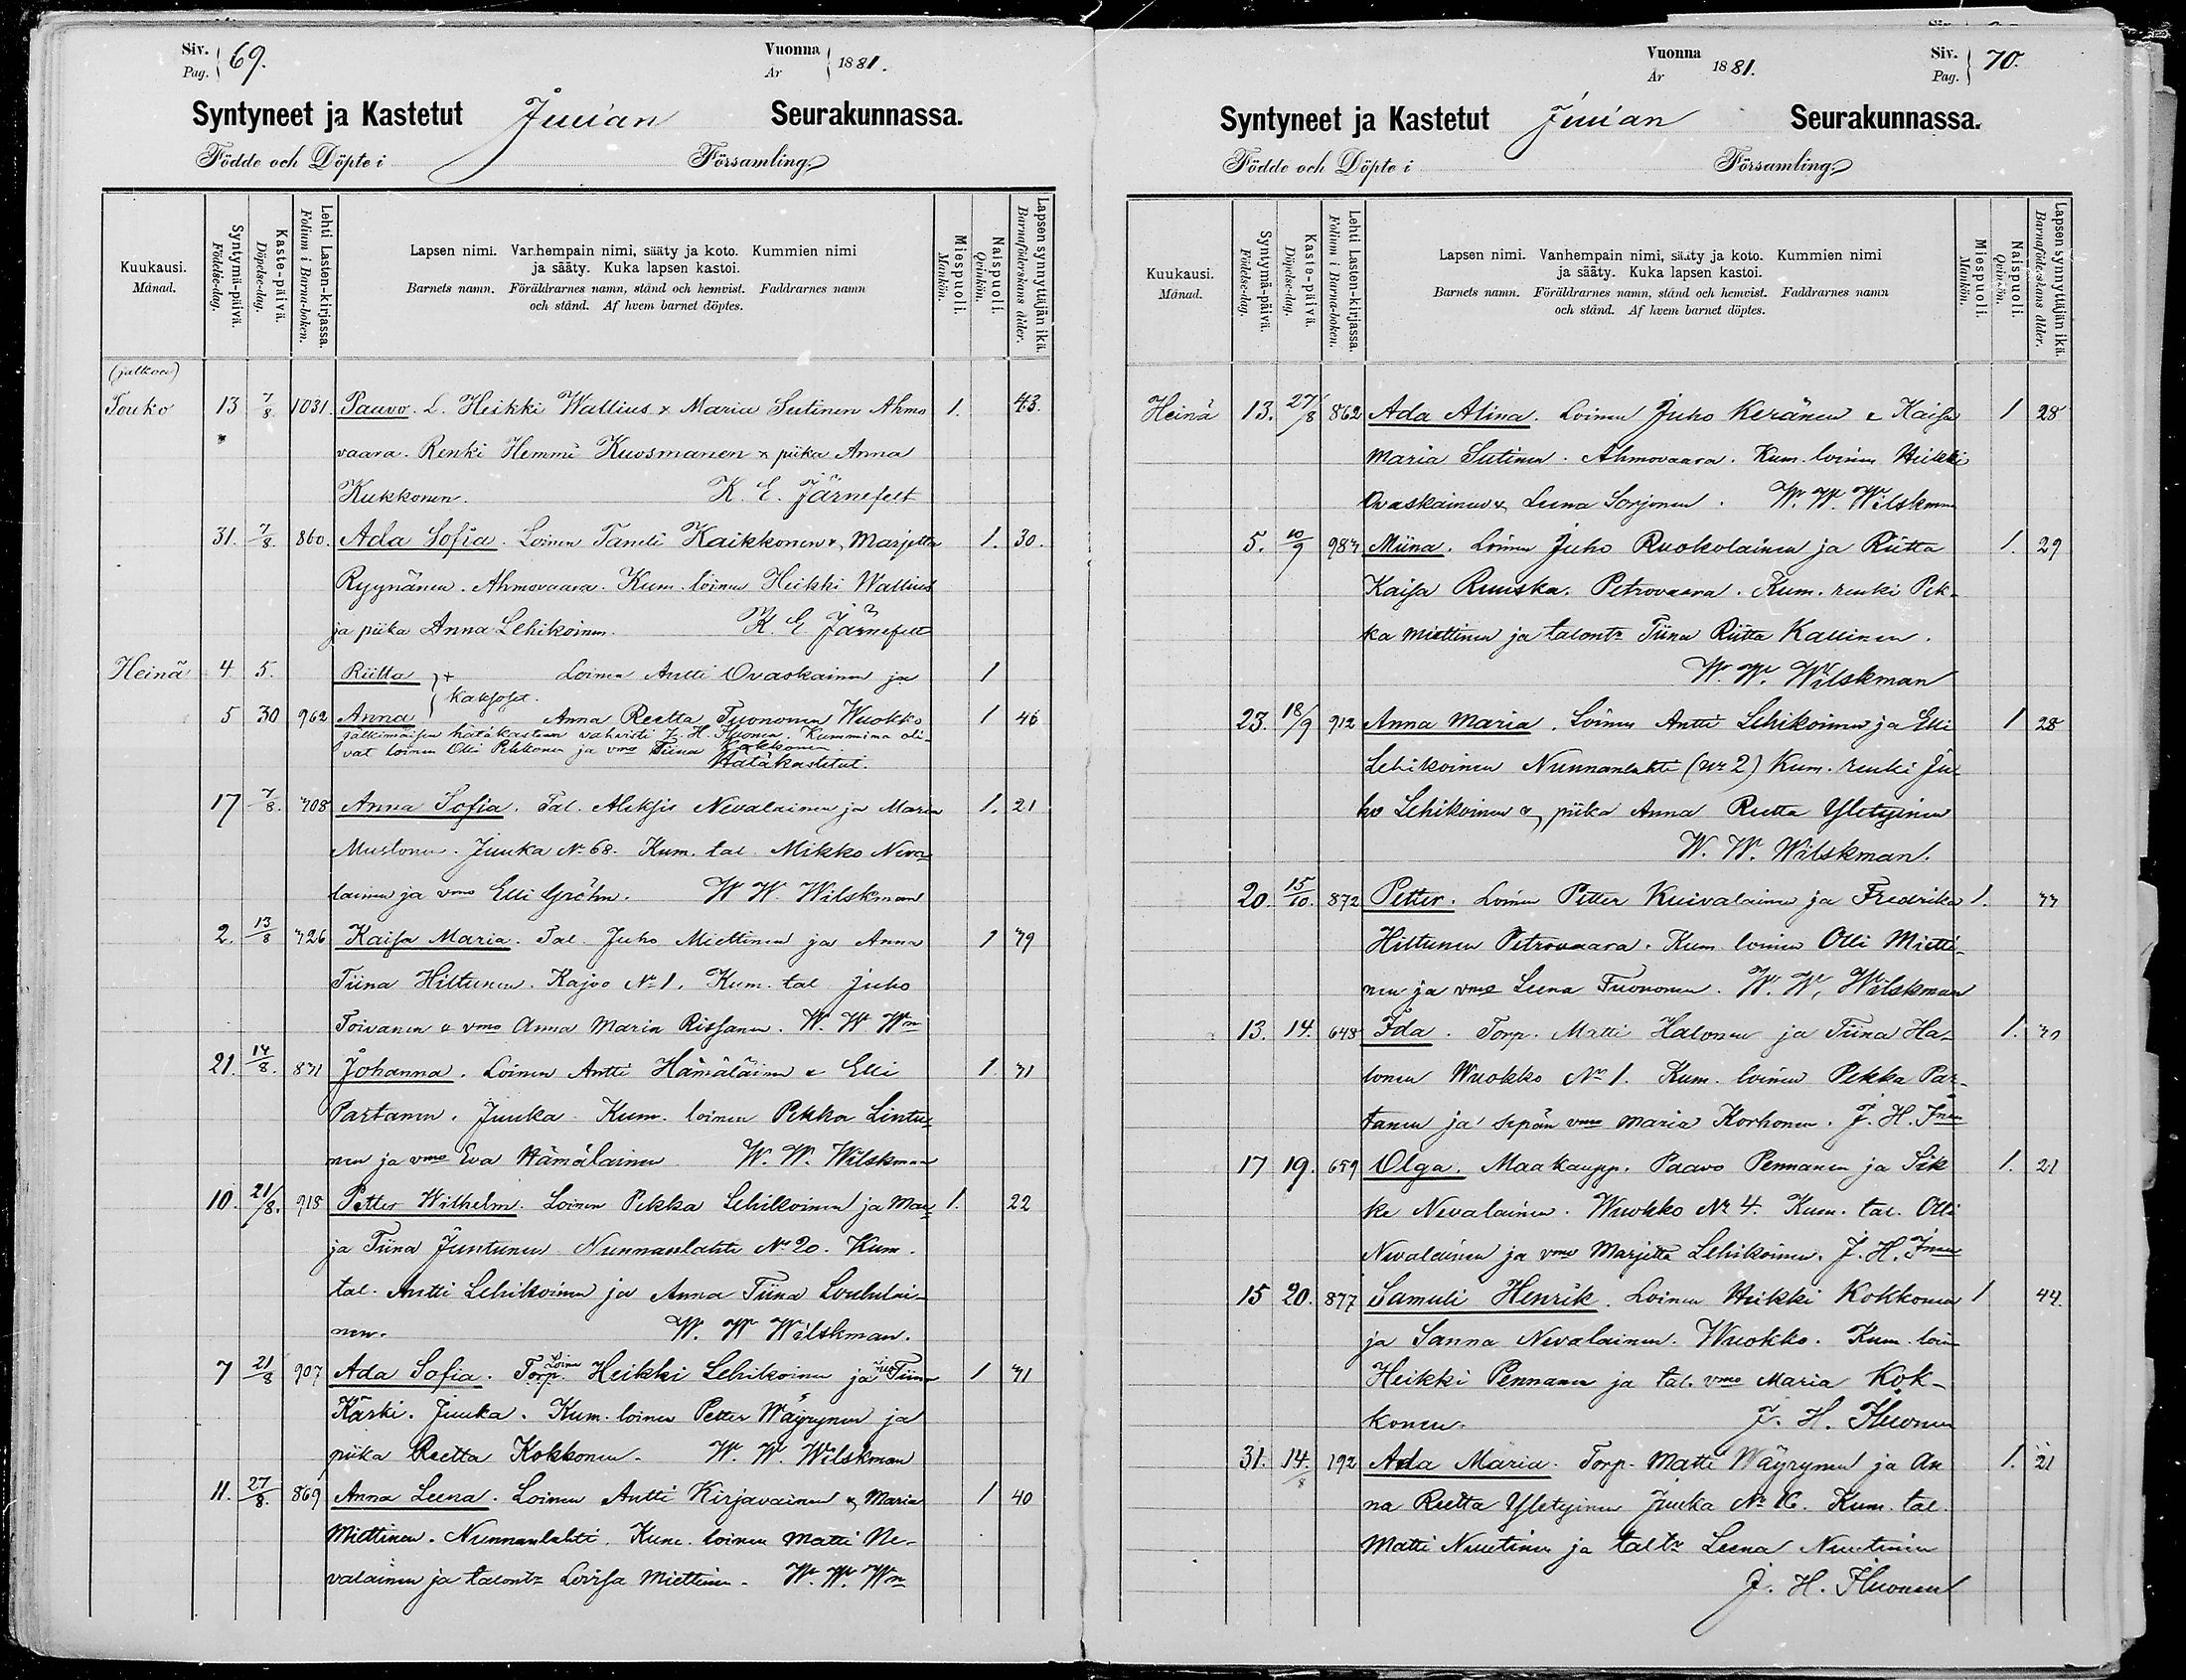 Siv. Pag. 69.
Vuonna År 1881.
Syntyneet ja Kastetut Juuan Seurakunnassa.
Födde och Döpte i Församling.
Kuukausi. Månad.
Syntymä-päivä. Födelse-dag.
Kaste-päivä. Döpelse-dag.
Lehti Lasten-kirjassa. Folium i Barna-boken.
Lapsen nimi. Vanhempain nimi, sääty ja koto. Kummien nimi
ja sääty. Kuka lapsen kastoi.
Barnets namn. Föräldrarnes namn, stånd och hemvist. Faddrarnes namn
och stånd. Af hvem barnet döptes.
Miespuoli. Mankön.
Naispuoli. Qvinkön.
Lapsen synnyttäjän ikä. Barnaföderskans ålder.
(jatkoa)
Touko 13 7/8 1031. Paavo. L. Heikki Wallius & Maria Sutinen Ahmo 1. 43.
vaara. Renki Hemmi Kuosmanen & piika Anna
Kukkonen. K. E. Järnefelt
31. 7/8. 860. Ada Sofia. Loinen Taneli Kaikkonen & Marjetta 1. 30.
Ryynänen. Ahmovaara. Kum. loinen Heikki Wallius
ja piika Anna Lehikoinen. K. E. Järnefelt
Heinä 4 5. Riitta + Loinen Antti Ovaskainen ja 1
kaksoset.
5 30 962 Anna Anna Reetta Tuononen Wuokko 1 46
jälkimäisen hätäkasteen vahvisti J. H. Ihuonen. Kummina oli-
vat loinen Olli Pekkonen ja vmo Tiina Kokkonen.
Hätäkastetut.
17 7/8. 708 Anna Sofia. Tal. Aleksis Nevalainen ja Maria 1. 21
Mustonen. Juuka No 68. Kum. tal. Mikko Neva-
lainen ja vmo Elli Gröhn. W W. Wilskman
2. 13/8 726 Kaisa Maria. Tal. Juho Miettinen ja Anna 1 39
Tiina Hiltunen. Kajoo No 1. Kum. tal Juho
Toivanen & vmo Anna Maria Rissanen. W. W Wm
21. 14/8. 831 Johanna. Loinen Antti Hämäläinen & Elli 1. 31
Partanen. Juuka. Kum. loinen Pekka Lintu-
nen ja vmo Eva Hämäläinen W. W. Wilskman
10. 21/8. 918 Petter Wilhelm. Loinen Pekka Lehikoinen ja Mar- 1. 22
ja Tiina Juntunen Nunnanlahti No 20. Kum.
tal. Antti Lehikoinen ja Anna Tiina Loukulai-
nen. W. W Wilskman.
7 21/8 907 Ada Sofia. Torp. Loinen Heikki Lehikoinen ja Tiina 1 31
Kärki. Juuka. Kum. loinen Petter Wäyrynen ja
piika Reetta Kokkonen. W. W. Wilskman
11. 27/8. 869 Anna Leena. Loinen Antti Kirjavainen & Maria 1 40
Miettinen. Nunnanlahti. Kum. loinen Matti Ne-
valainen ja talontr Lovisa Miettinen. W. W. Wm
Vuonna År 1881.
Siv. Pag. 70.
Syntyneet ja Kastetut Juuan Seurakunnassa.
Födde och Döpte i Församling.
Kuukausi. Månad.
Syntymä-päivä. Födelse-dag.
Kaste-päivä. Döpelse-dag.
Lehti Lasten-kirjassa. Folium i Barna-boken.
Lapsen nimi. Vanhempain nimi, sääty ja koto. Kummien nimi
ja sääty. Kuka lapsen kastoi.
Barnets namn. Föräldrarnes namn, stånd och hemvist. Faddrarnes namn
och stånd. Af hvem barnet döptes.
Miespuoli. Mankön.
Naispuoli. Qvinkön.
Lapsen synnyttäjän ikä. Barnaföderskans ålder.
Heinä 13. 27/8 862 Ada Alina. Loinen Juho Keränen & Kaisa 1 28
Maria Sutinen. Ahmovaara. Kum. loinen Heikki
Ovaskainen & Leena Sorjonen. W. W. Wilskman
5. 10/9 983 Miina. Loinen Juho Ruokolainen ja Riitta 1. 29
Kaisa Ruuska. Petrovaara. Kum. renki Pek-
ka Miettinen ja talontr Tiina Riitta Kallinen.
W. W. Wilskman
23. 18/9 912 Anna Maria. Loinen Antti Lehikoinen ja Elli 1 28
Lehikoinen Nunnanlahti (nr 2) Kum. renki Ju-
ho Lehikoinen & piika Anna Reetta Yletyinen
W. W. Wilskman.
20. 15/10. 872 Petter. Loinen Petter Kuivalainen ja Fredrika 1. 33
Hiltunen Petrovaara. Kum. loinen Olli Mietti-
nen ja vmo Leena Tuononen. W. W. Wilskman
13. 14. 648 Ida. Torp. Matti Halonen ja Tiina Ha- 1. 30
lonen Wuokko No 1. Kum. loinen Pekka Par-
tanen ja sepän vmo Maria Korhonen. J. H. Inen
17 19. 659 Olga. Maakaupp. Paavo Pennanen ja Sik 1. 21
ke Nevalainen. Wuokko No 4. Kum. tal. Olli
Nevalainen ja vmo Marjetta Lehikoinen. J. H. Inen
15 20. 877 Samuli Henrik. Loinen Heikki Kokkonen 1 44.
ja Sanna Nevalainen. Wuokko. Kum. loin
Heikki Pennanen ja tal. vmo Maria Kok-
konen. J. H. Ihuonen
31. 14./8 192 Ada Maria. Torp. Matti Wäyrynen ja An 1. 21
na Reetta Yletyinen Juuka No 16. Kum. tal.
Matti Nuutinen ja taltr Leena Nuutinen
J. H. Ihuonen